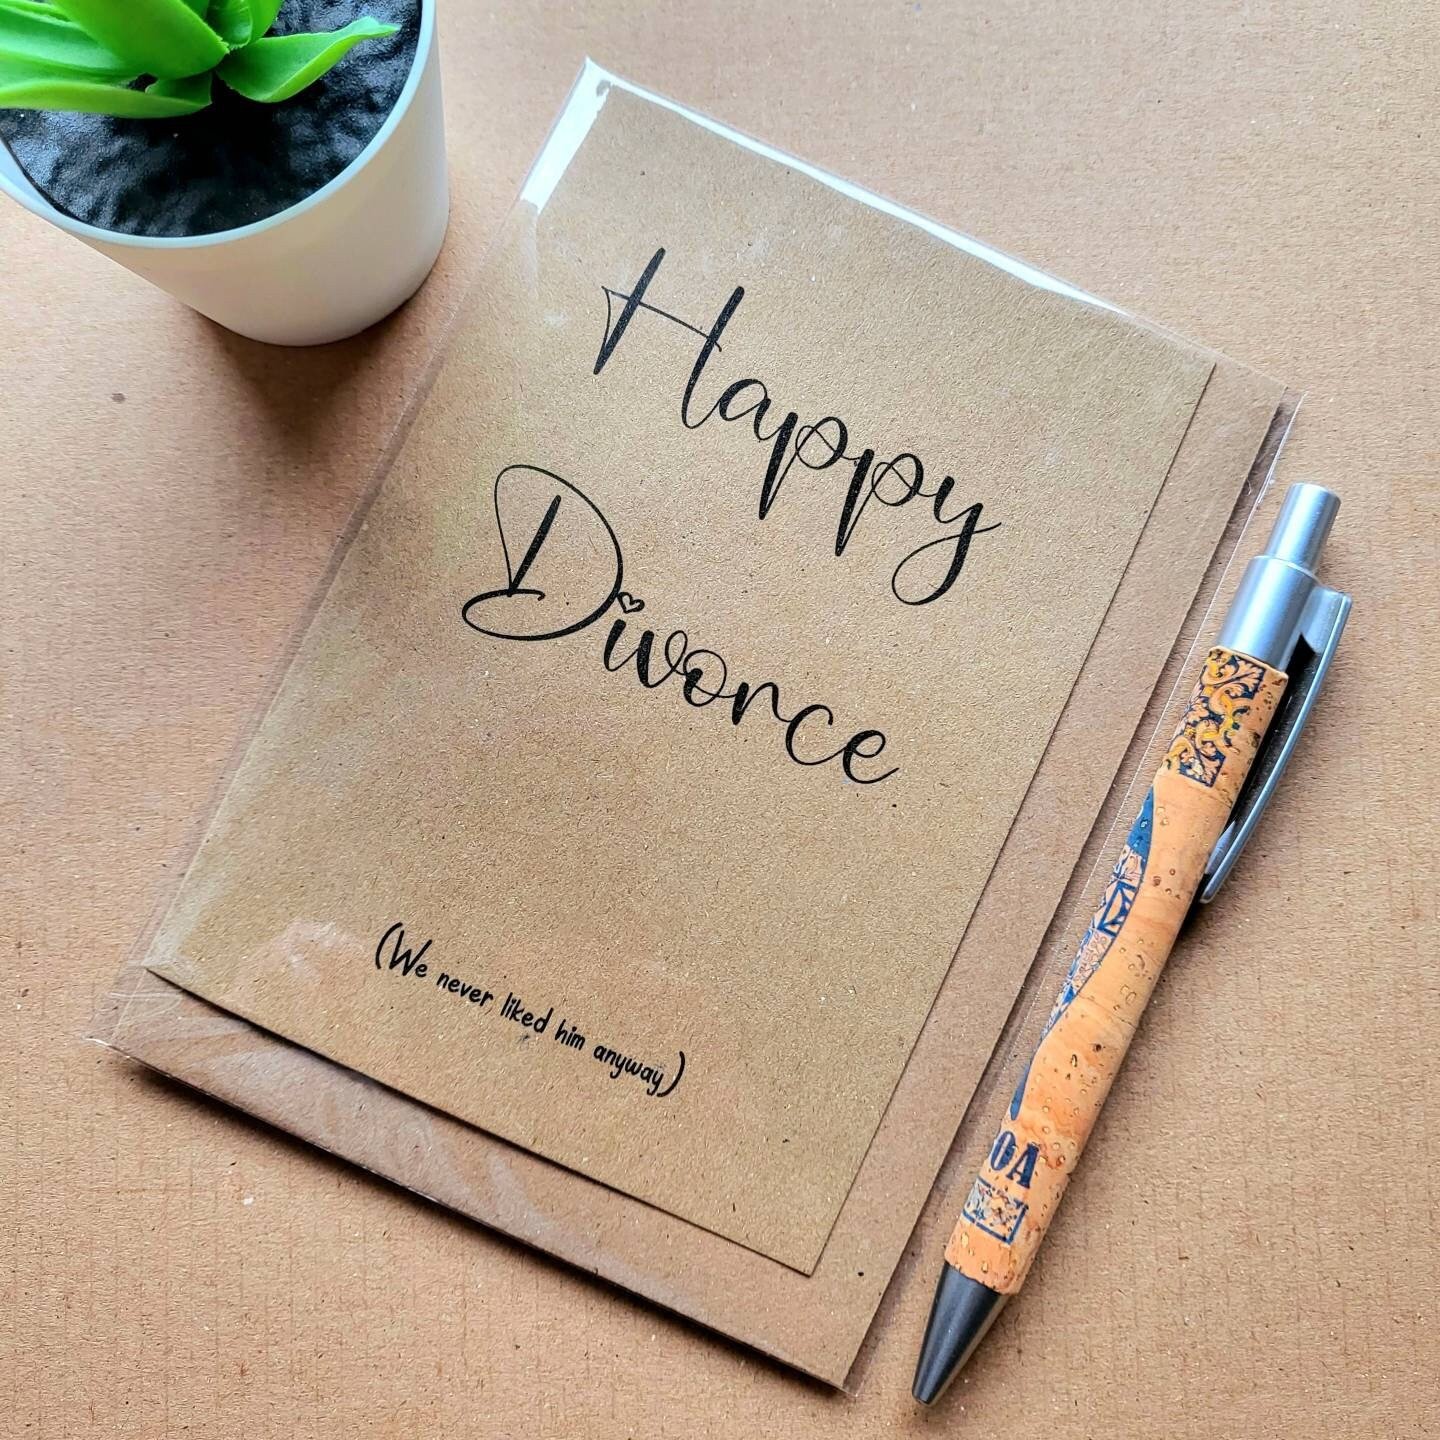 Happy
Divorce
(We never liked him anyway)
OA